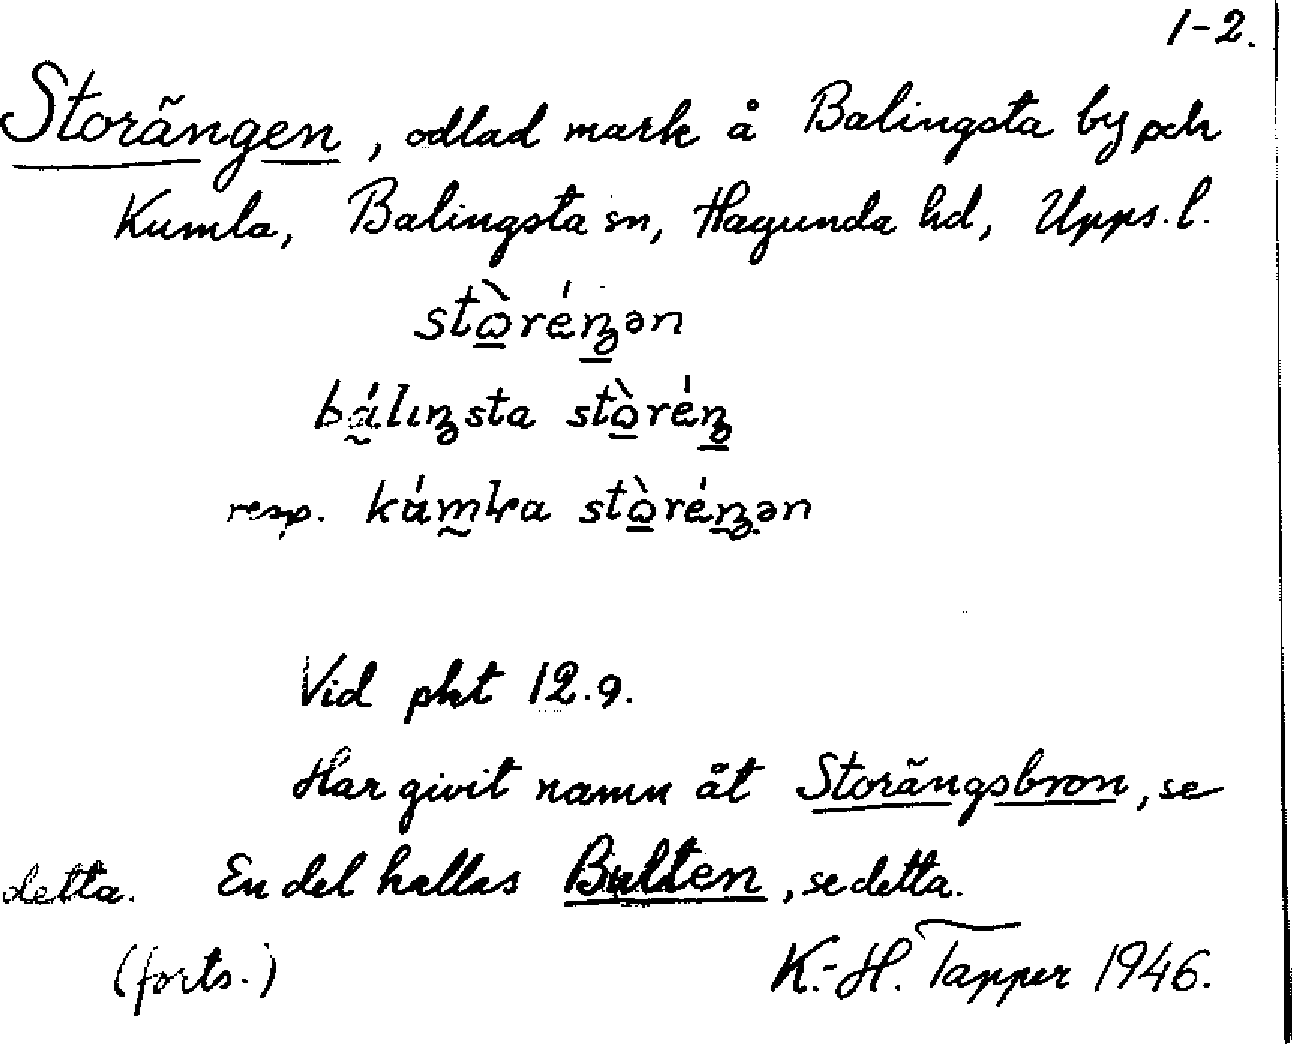 1-2.
Storängen, odlad mark å Balingsta by och
Kumla, Balingsta sn, Hagunda hd, Upps. l.
stὼ̲réŋ̲ən
bá̰lıŋsta stὼ̲réŋ̲
resp. kúm̰ɫa stὼ̲réŋ̰ən
Vid pkt 12.9.
Har givit namn åt Storängsbron, se
detta. En del kallas Bulten, se detta.
(forts.) K.-H. Tapper 1946.